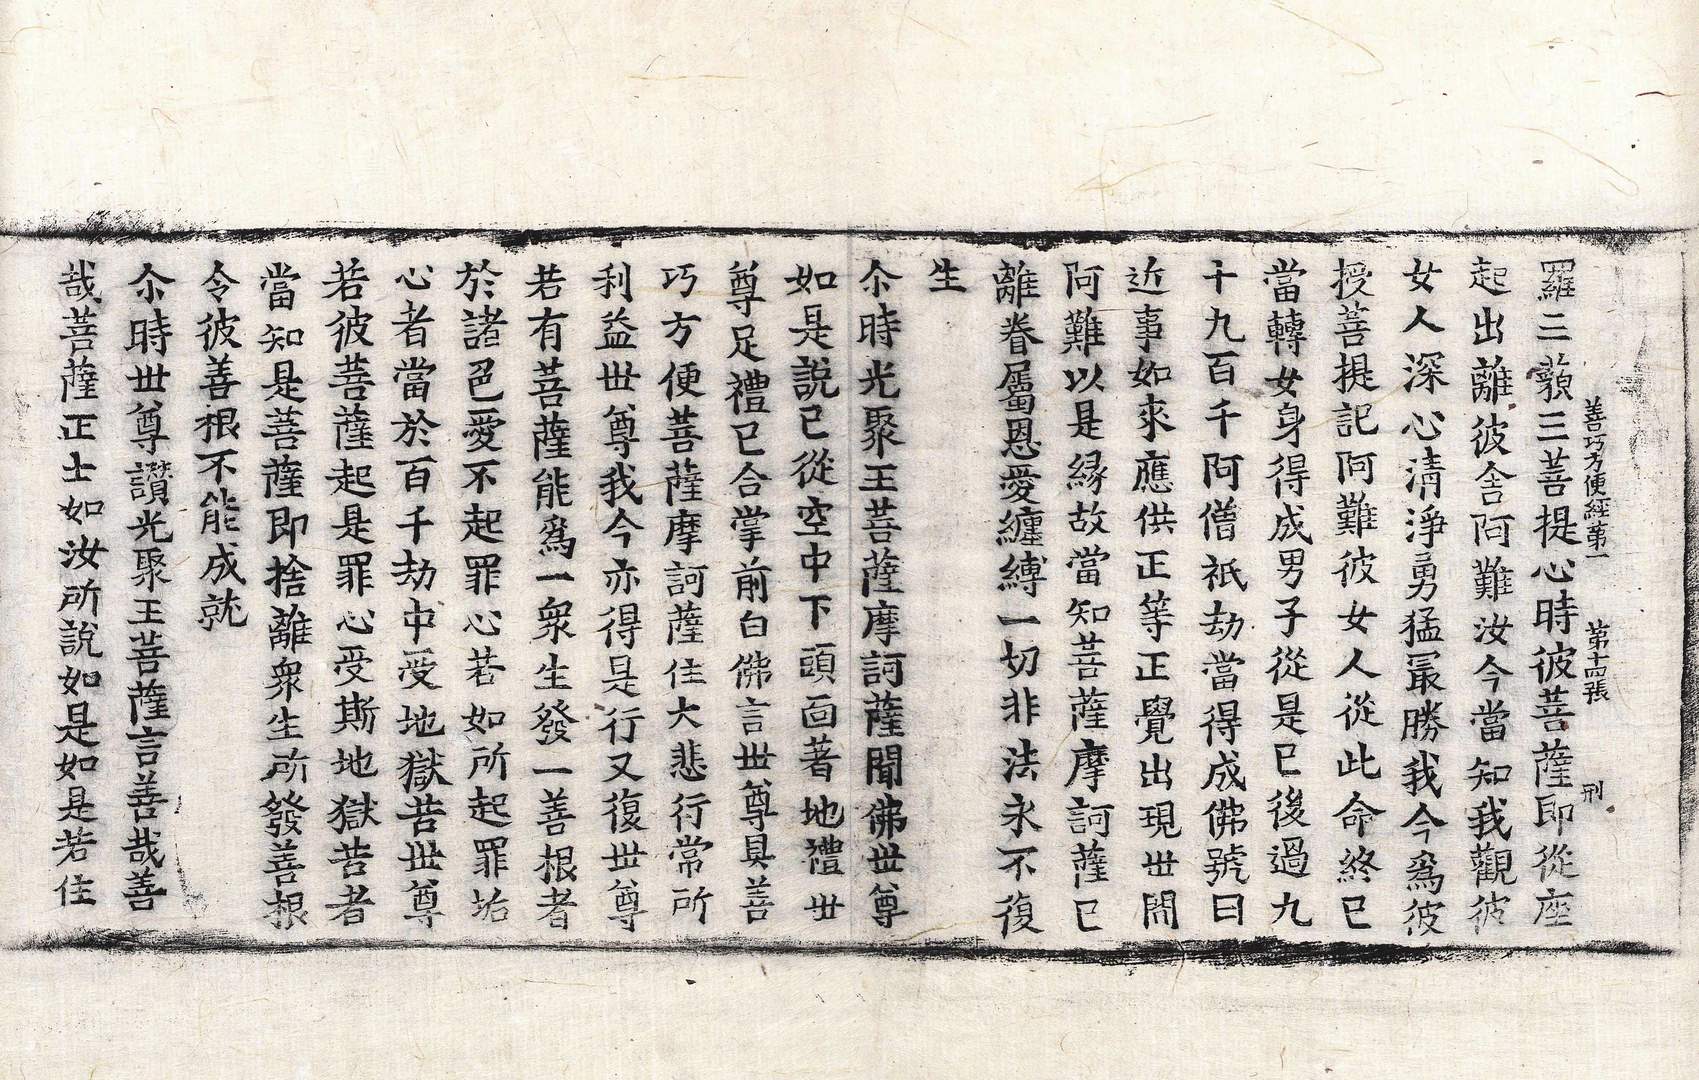 善巧方便經第一　第十四張　刑
羅三藐三菩提心時彼菩薩即從座
起出離彼舍阿難汝今當知我觀彼
女人深心清淨勇猛冣勝我今爲彼
授菩提記阿難彼女人從此命終已
當轉女身得成男子從是已後過九
十九百千阿僧祇劫當得成佛號曰
近事如來應供正等正覺出現世間
阿難以是緣故當知菩薩摩訶薩已
離眷屬恩愛纏縛一切非法永不復
生
尒時光聚王菩薩摩訶薩聞佛世尊
如是說已從空中下頭面著地禮世
尊足禮已合掌前白佛言世尊具善
巧方便菩薩摩訶薩住大悲行常所
利益世尊我今亦得是行又復世尊
若有菩薩能爲一衆生發一善根者
於諸色愛不起罪心若如所起罪垢
心者當於百千劫中受地獄苦世尊
若彼菩薩起是罪心受斯地獄苦者
當知是菩薩即捨離衆生所發善根
令彼善根不能成就
尒時世尊讚光聚王菩薩言善哉善
哉菩薩正士如汝所說如是如是若住